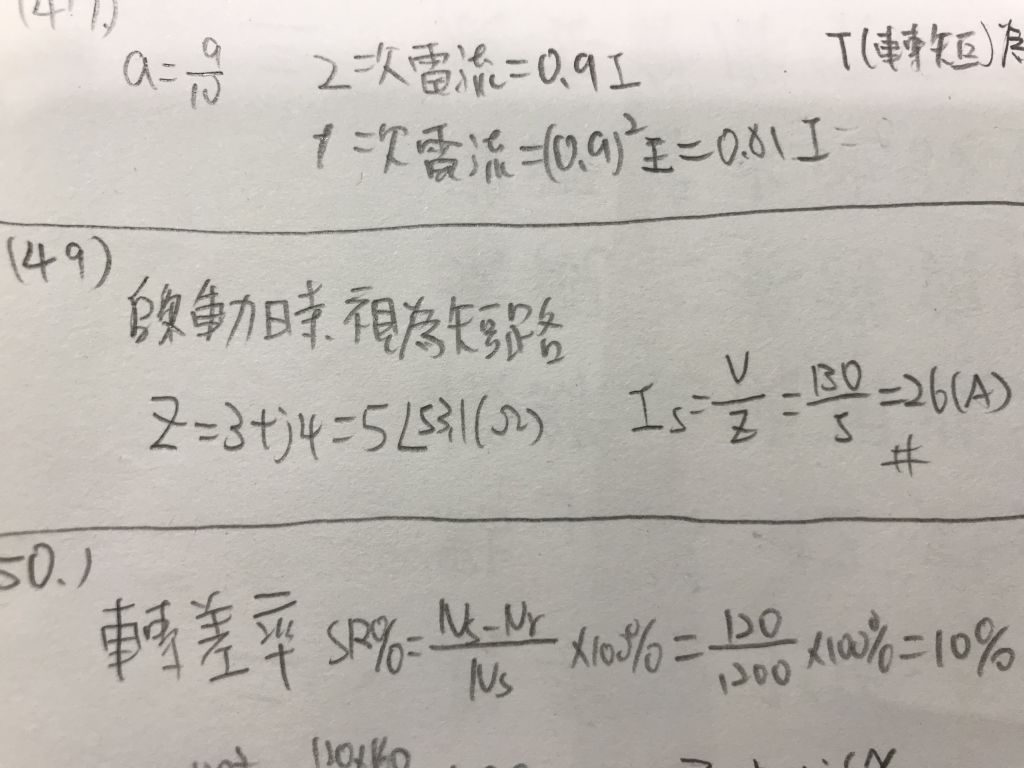 a=9/10 2=次電流=0.9I T(轉矩)為
1=次電流=(0.9)²I=0.81I=
(49)
啟動時.視為短路
Z=3+j4=5∠53.1(Ω) Is=V/Z=130/5=26(A)
#
50.)
轉差率 SR%=Ns-Nr/Ns×100%=120/1200×100%=10%